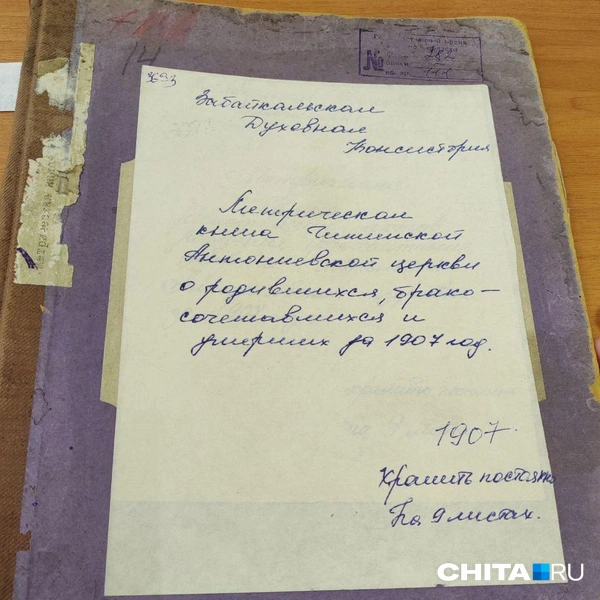 3693
Забайкальская
Духовная
Консистория
Метрическая
книга Читинской
Антониевской церкви
о родившихся, брако-
сочетавшихся и
умерших за 1907 год.
1907.
Хранить постоянно
На 9 листах.
№
282
CHITA.RU